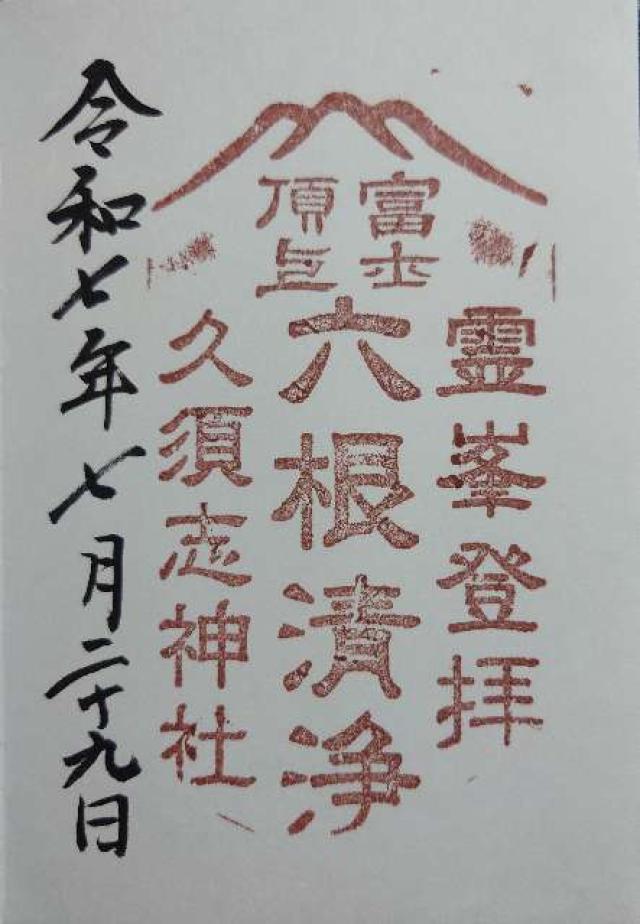 富士
頂上
霊峯登拝
六根清浄
久須志神社
令和七年七月二十九日